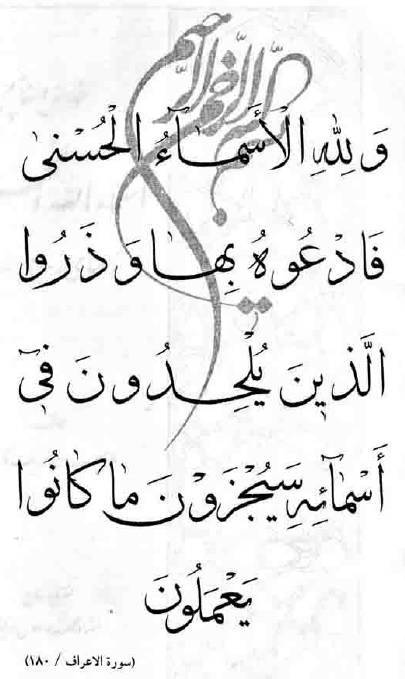 بسم الله الرحمن الرحيم
وَلِلَّهِ الْأَسْمَآءُ الْحُسْنىٰ
فَادْعُوهُ بِهٰا وَذَرُوا
الَّذينَ يُلْحِدُونَ فىٓ
أَسْمٰآئِهِ سَيُجْزَوْنَ مٰا كٰانُوا
يَعْمَلُونَ
(سورة الاعراف / ١٨٠)